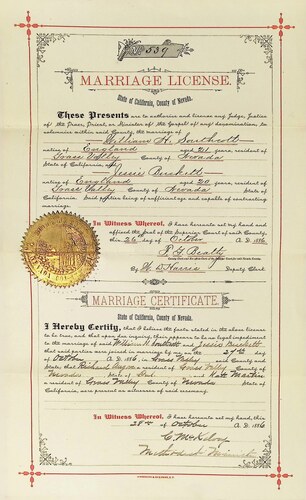 539
MARRIAGE LICENSE.
State of California, County of Nevada.
These Presents are to authorize and license any Judge, Justice
of the Peace, Priest, or Minister of the Gospel of any denomination, to
solemnize within said County, the marriage of
William H. Southcott
native of England aged 21 years, resident of
Grass Valley County of Nevada
State of California, and
Jessie Beckett
native of England aged 20 years, resident of
Grass Valley County of Nevada
State of California. Said parties being of sufficient age and capable of contracting
marriage.
In Witness Whereof, I have hereunto set my hand and
affixed the Seal of the Superior Court of said County,
this 26 day of October A. D. 1886
F. G. Beatty
By W. D. Harris Deputy Clerk
MARRIAGE CERTIFICATE.
State of California, County of Nevada.
I Hereby Certify, that I believe the facts stated in the above license
to be true, and that upon due inquiry, there appears to be no legal impediment
to the marriage of said William H. Southcott and Jessie Beckett
that said parties were joined in marriage by me, on the 27th day
of October A. D. 1886, in Grass Valley said County and
State; that Richard Mayne a resident of Grass Valley County of
Nevada State of Cal. and Kate Martin
a resident of Grass Valley County of Nevada State of
California, were present as witnesses of said ceremony.
In Witness Whereof, I have hereunto set my hand, this
28th day of October A. D. 1886
Methodist Minister